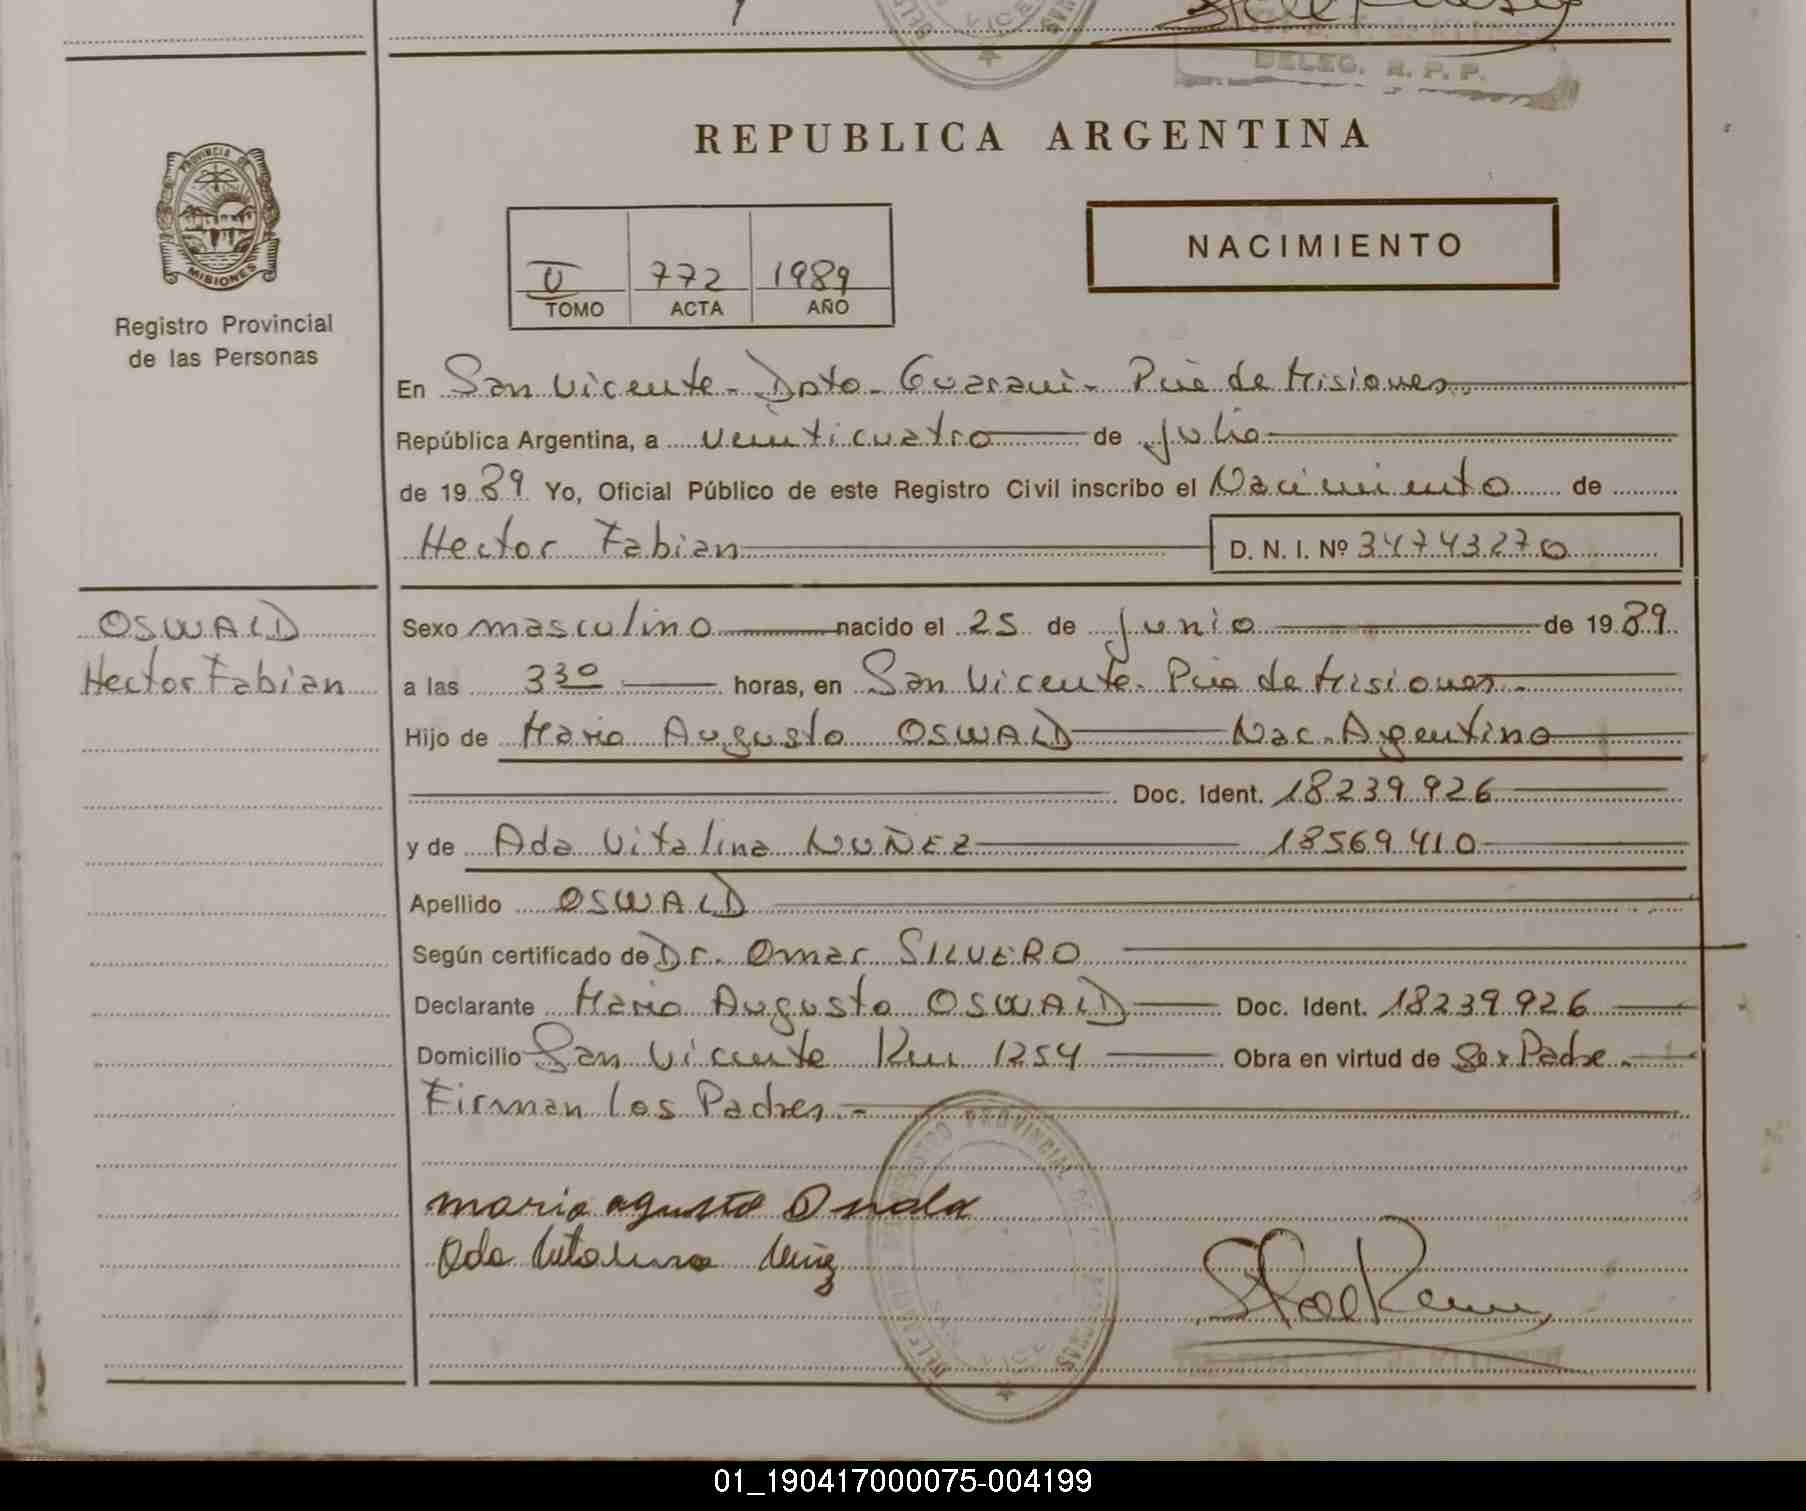 DELEG. R. P. P.
REPUBLICA ARGENTINA
PROVINCIA DE
MISIONES
Registro Provincial
de las Personas
NACIMIENTO
772 1989
TOMO ACTA AÑO
En San Vicente - Dpto - Guarani - Pcia de Misiones.
República Argentina, a veinticuatro de Julio
de 1989 Yo, Oficial Público de este Registro Civil inscribo el Nacimiento de
Hector Fabian D. N. I. Nº 34743270
OSWALD
Hector Fabian
Sexo masculino nacido el 25 de Junio de 1989
a las 3 30 horas, en San Vicente - Pcia de Misiones -
Hijo de Mario Augusto OSWALD Nac. Argentino
Doc. Ident. 18239926
y de Ada Vitalina NUÑEZ 18569410
Apellido OSWALD
Según certificado de Dr. Omar SILVERO
Declarante Mario Augusto OSWALD Doc. Ident. 18239926
Domicilio San Vicente Km 1254 Obra en virtud de Ser Padre -
Firman los Padres -
mario agusto
REGISTRO PROVINCIAL DE
01_190417000075-004199